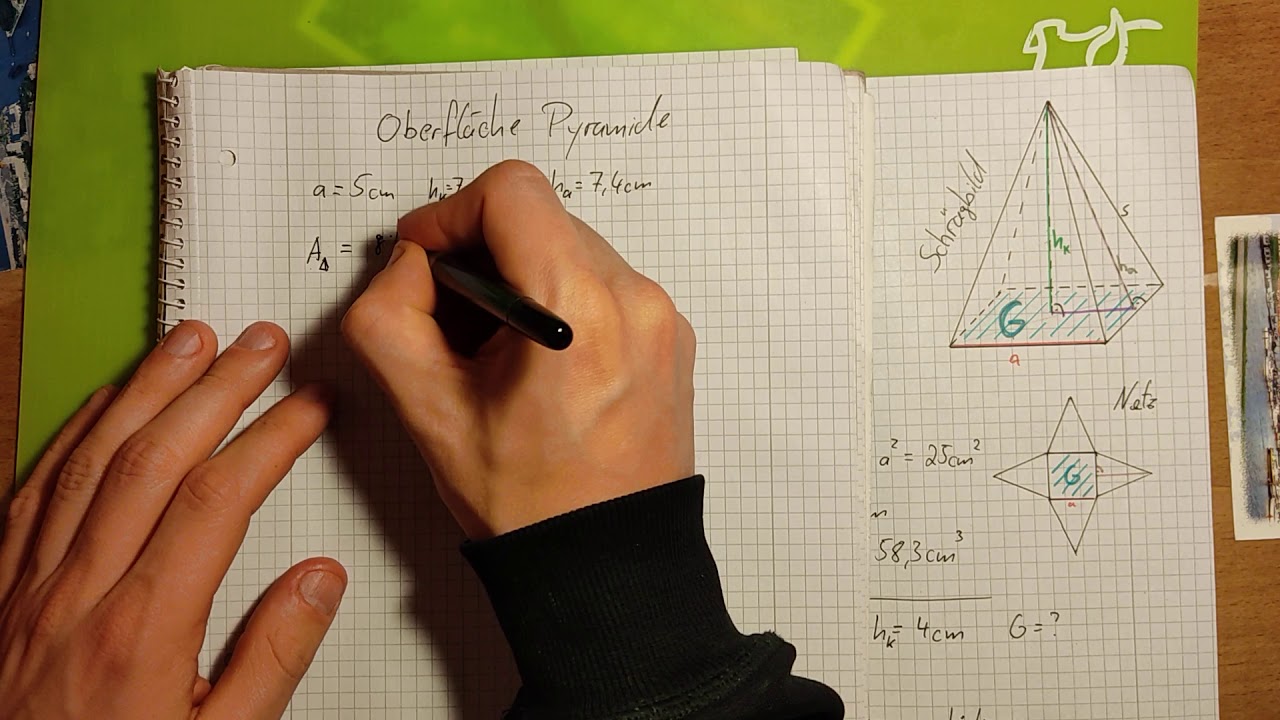 Oberfläche Pyramide
a = 5cm hₖ=7 hₐ = 7,4cm
A_Δ =
Schrägbild
s
hₖ
hₐ
G
a
Netz
G
a
a² = 25cm²
58,3cm³
hₖ= 4cm G = ?